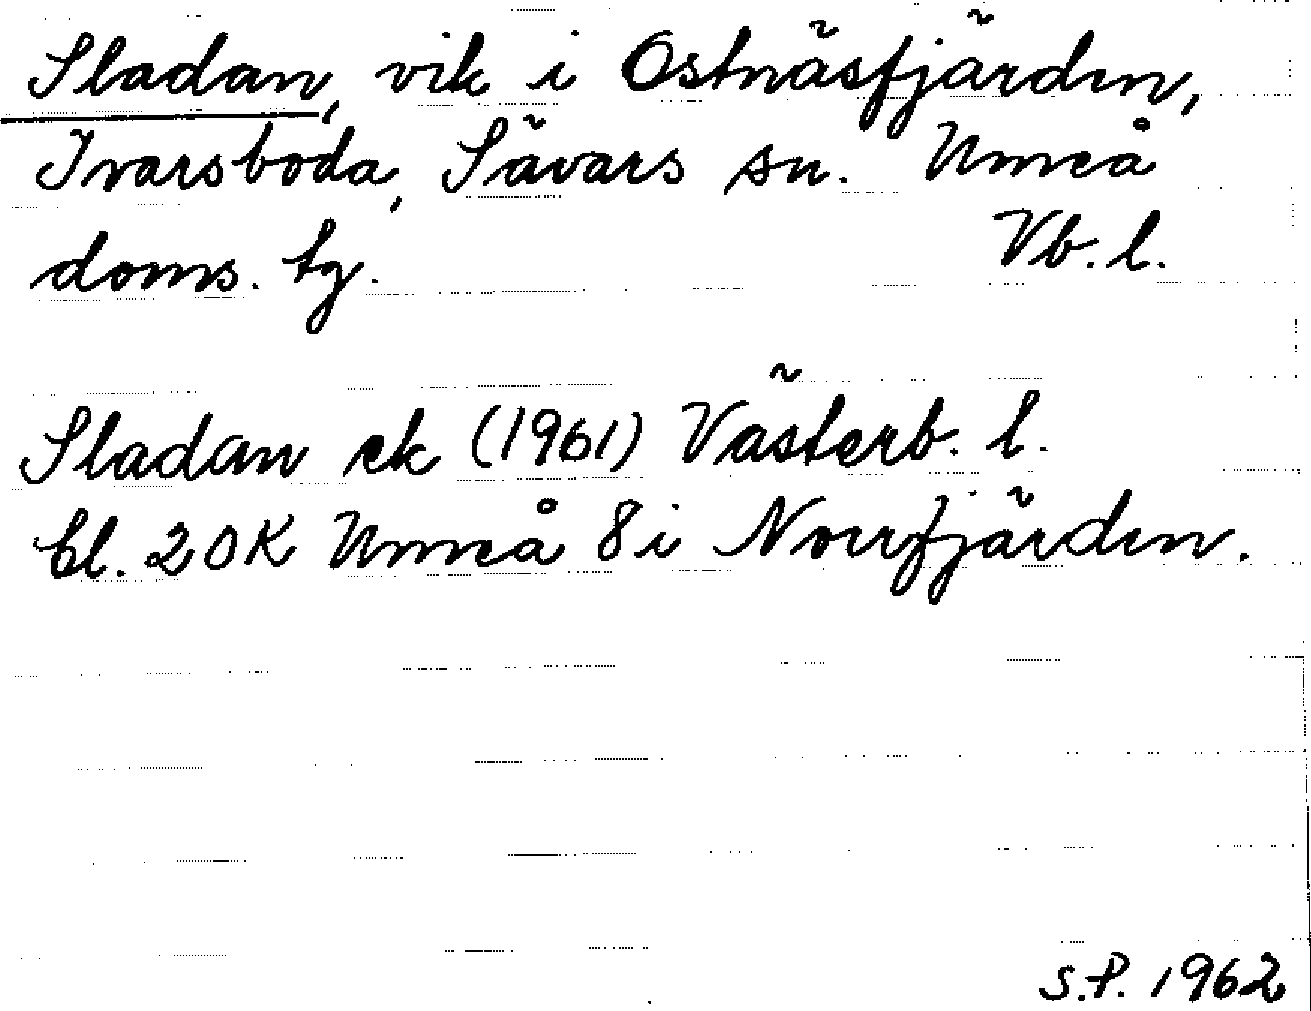 Sladan, vik i Ostnäsfjärden,
Ivarsboda, Sävars sn. Umeå
doms. tg. Vb. l.
Sladan ek (1961) Västerb. l.
bl. 20K Umeå 8i Norrfjärden.
S.P. 1962